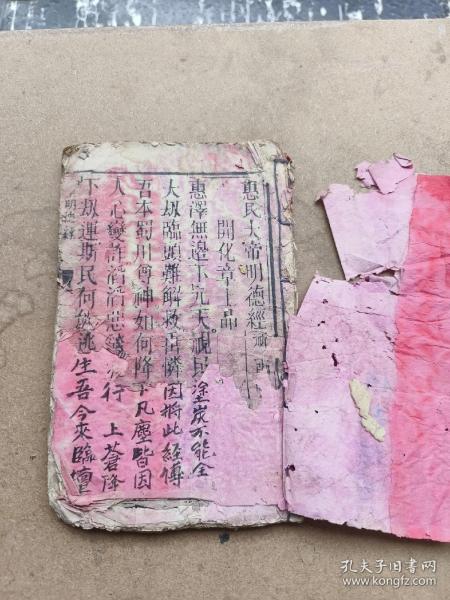 惠民大帝明德經
開化章上品
惠澤無邊下元天視民塗炭不能全
大刼臨頭難解救吾憐因將此經傳
吾本蜀川尊神如何降下凡塵皆因
人心變詐滔滔惡行上蒼降
下刼運斯民何能逃生吾今來臨壇
明
孔夫子旧书网
www.kongfz.com